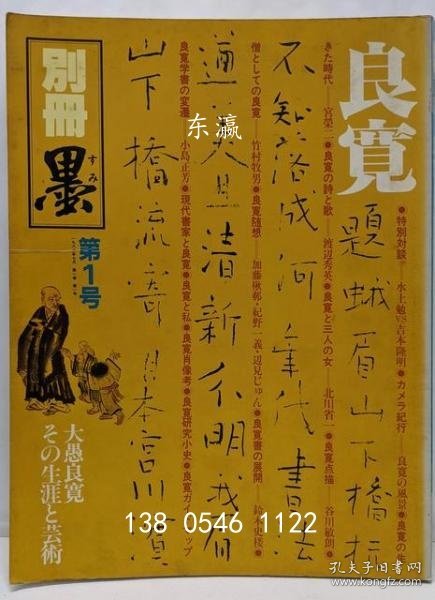 良寛
●特別対談──水上勉VS吉本隆明●カメラ紀行──良寛の風景●良寛の生
きた時代──宮榮二●良寛の詩と歌──渡辺秀英●良寛と三人の女──北川省一●良寛点描──谷川敏朗●
僧としての良寛──竹村牧男●良寛随想──加藤楸邨・紀野一義・辺見じゅん●良寛書の展開──鈴木史楼●
良寛学書の変遷──小島正芳●現代書家と良寛●良寛と私●良寛肖像考●良寛研究小史●良寛ガイ ップ
題蛾眉山下橋杭
不知落成何年代書法
遒美且清新分明我眉
山下橋流寄日本宮川濱
別冊
墨
すみ
第1号
大愚良寛
その生涯と芸術
东瀛
138 0546 1122
孔夫子旧书网
www.kongfz.com